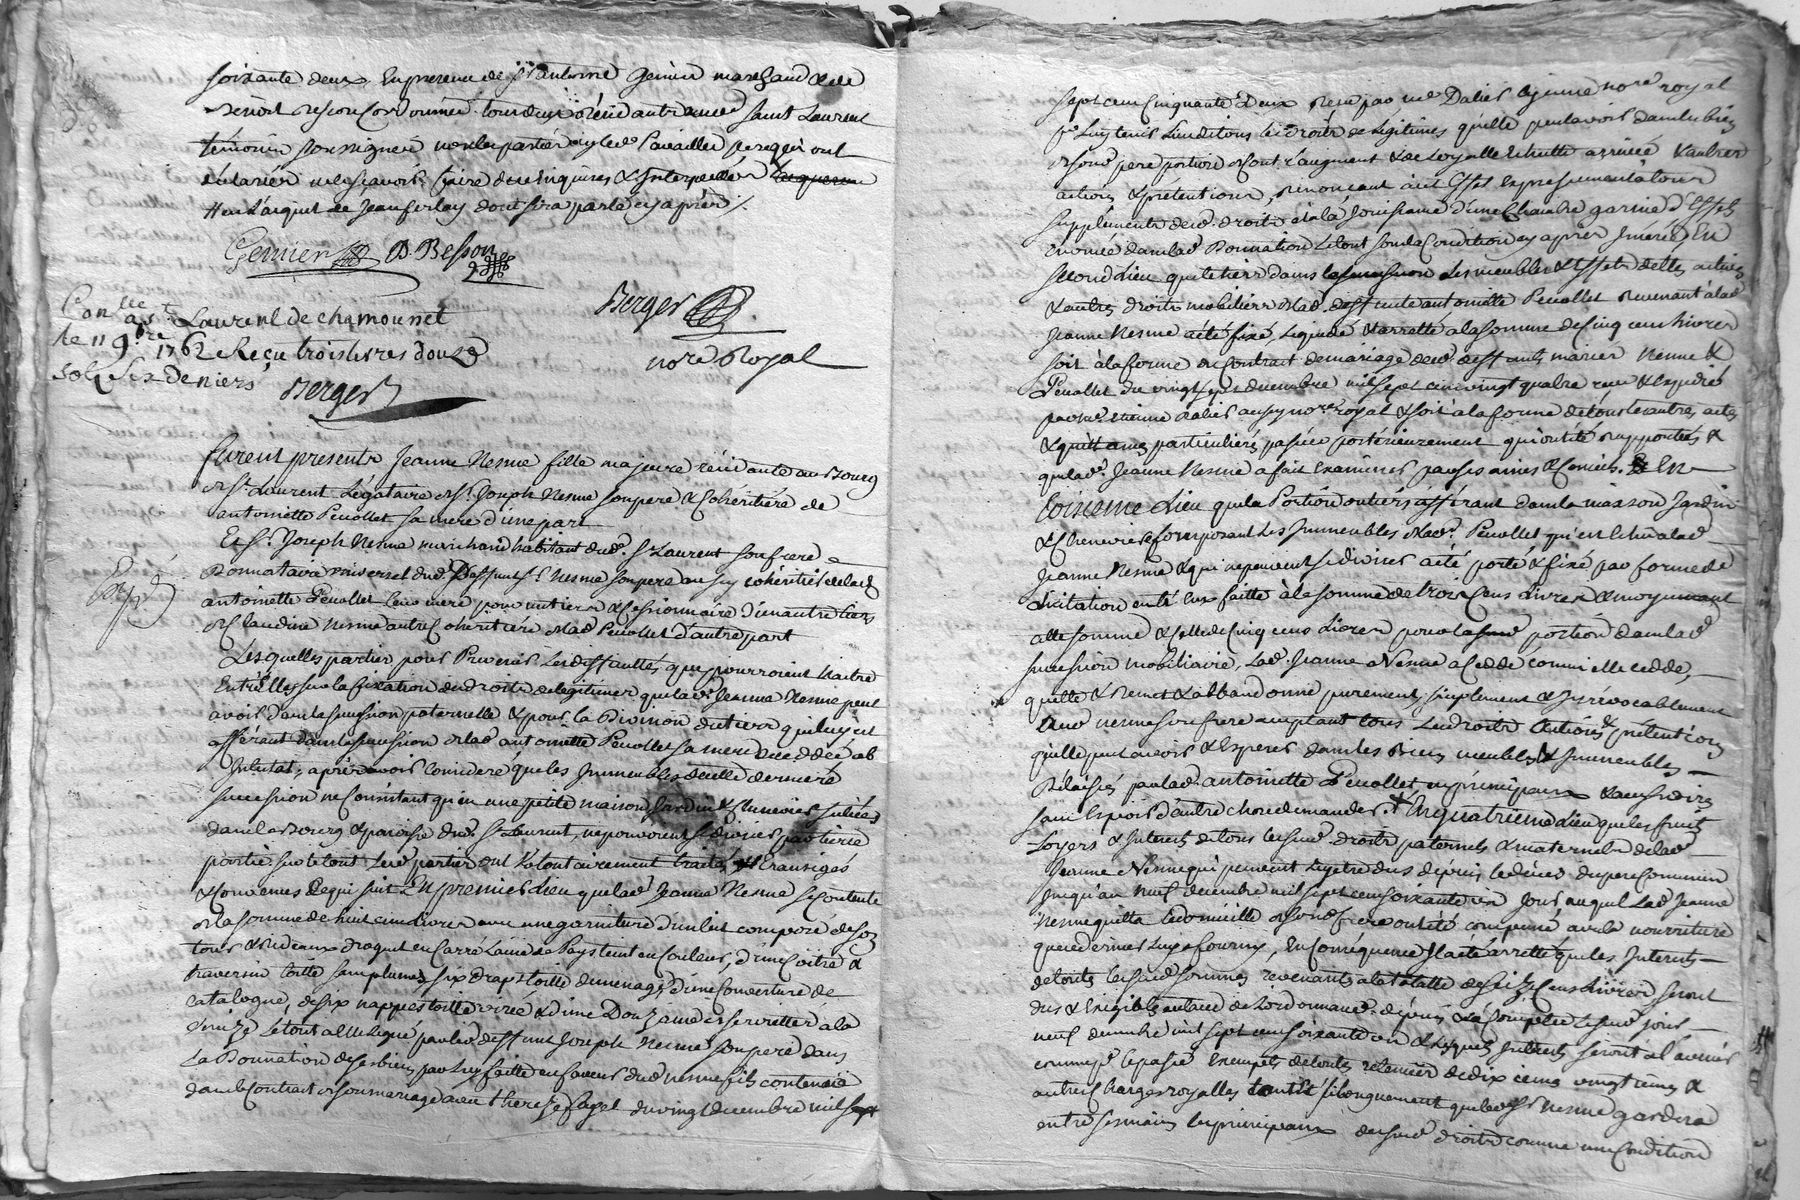 soixante deux En presence de Sr antoine Genier marchand & de
Benoit Besson Cordonnier tous deux résidants aud Saint Laurent
témoins soussignés non les parties ny led Pacallet de ce qu'il ont
déclarés ne scavoir faire de ce enquises & Interpellés
Genier D. Besson
Conlle a St Laurent de chamounet
le 11 9bre 1762 Reçu trois livres douze
sols six deniers
Berger
Berger
nore Royal
furent presents Jeanne Nesme fille majeure résidante au Bourg
de St Laurent Légataire de Sr Joseph Nesme son pere & Cohéritière de
antoinette Penollet sa mere d'une part
Et Sr Joseph Nesme marchand habitant dud St Laurent son frere
Donnataire universel dud Deffunt Sr Nesme son pere aussy cohéritier de lad
antoinette Penollet leur mere pour un tiers & Cessionnaire d'un autre tiers
de Claudine Nesme autre Coheritière de lad Penollet d'autre part
Exp
Lesquelles parties pour Prevenir Les difficultés qui pourroient Naitre
Entrelles sur la fixation du droit de légitime que lad Jeanne Nesme peut
avoir dans la succession paternelle & pour la Division du tiers qui luy est
afférant dans la succession de lad antoinette Penollet sa mere decedée ab
Intestat, après avoir consideré que les Immeubles de cette derniere
succession ne Consistant qu'en une petite maison Jardin & Chenevier situés
dans le Bourg & paroisse dud St Laurent, ne pouvoient se diviser
partie sur le tout Lesd parties ont Volontairement traité, & transigés
& Convenus de qui suit En premier Lieu que lad Jeanne Nesme se contente
de la somme de huit cens livres avec une garniture d'un lit composé de son
tour & Rideaux droguet en Carré Laine de Pays teint en Couleur, d'une Coitre &
traversin toille sans plumes six draps toille de menage, d'une Couverture de
catalogne, de six nappes toille & d'une Douzaine de serviettes a la
Venize Le tout a elle legué par led deffunt Joseph Nesme son pere dans
La Donnation de ses biens par Luy faitte en faveur dud Nesme fils contenüe
dans le Contrat de son mariage avec thereze fayel du vingt decembre mil sept
sept cent Cinquante deux Reçu par me Dalier le jeune nore royal
pour Luy tenir Lieu de tous les droits de Légitimes qu'elle peut avoir dans les biens
de son pere portion de son l'augment & de Loyalle Echutte arrivée & autres
actions & prétentions, Renonceant a cet Effet Expressement a tous
supplements desd droits & a la Jouissance d'une Chambre garnie d'Effets
Enoncée dans lad Donnation & dont sous la Condition cy après Inserée En
second Lieu que le tiers dans la succession Les meubles & Effets dettes actives
& autres droits mobiliers de lad deffunte antoinette Penollet Revenant a lad
Jeanne Nesme a été fixé, Liquidé & arretté a la somme de cinq cens livres
soit a la forme du Contrat de mariage desd deffunts mariés Nesme &
Penollet du vingt sept decembre mil sept cens vingt quatre reçu & Expedié
par me Etienne dalier aussy nore royal & soit a la forme de tous les autres actes
& quittances particulieres passées postérieurement qui ont été Rapportées &
que lad Jeanne Nesme a fait Examiner par ses amis & Conseils. En
troisieme Lieu que la Portion ou tiers afférant dans la maison Jardin
& Cheneviere Composant Les Immeubles de lad Penollet qui est Echu a lad
Jeanne Nesme & qui ne peuvent se diviser a été porté & fixé par forme de
Licitation entre Eux faitte à la somme de trois Cens Livres & moyennant
cette somme & celle de Cinq cens Livres pour lasusd portion dans lad
succession mobiliaire, Lad Jeanne Nesme a Ceddé comme elle cedde,
quitte & Remet & abbandonne purement, simplement & Irrévocablement
aud Nesme son frere acceptant tous Les droits Actions & prétentions
qu'elle peut avoir & Esperer dans les Biens meubles & Immeubles
Délaissés par lad antoinette Penollet, en principaux & accessoires
sans Espoir d'autre chose demander. En quatrieme Lieu que les fruits
Loyers & Interets de tous les susd droits paternels & maternels de lad
Jeanne Nesme qui peuvent Luy etre dus dépuis le décès du pere Commun
Jusqu'au neuf decembre mil sept cens soixante un Jour auquel Lad Jeanne
Nesme quitta le domicille de sond frere ont été compensé avec la nourriture
que ce dernier Luy a fourny, En Consequence Il a été arretté que les Interets
de touts les susd sommes revenants a la totalle de seize Cens Livres seront
dus & Exigibles au taux de L'ordonnance dépuis & a Compter Lesusd jour
neuf decembre mil sept cens soixante un & lesquels Interets seront a l'avenir
comme pr le passé Exempts de toutes retenües de dix ieme vingtieme &
autres charges royalles tant & si longuement que led Sr Nesme gardera
entre ses mains les principaux desusd droits comme une Condition